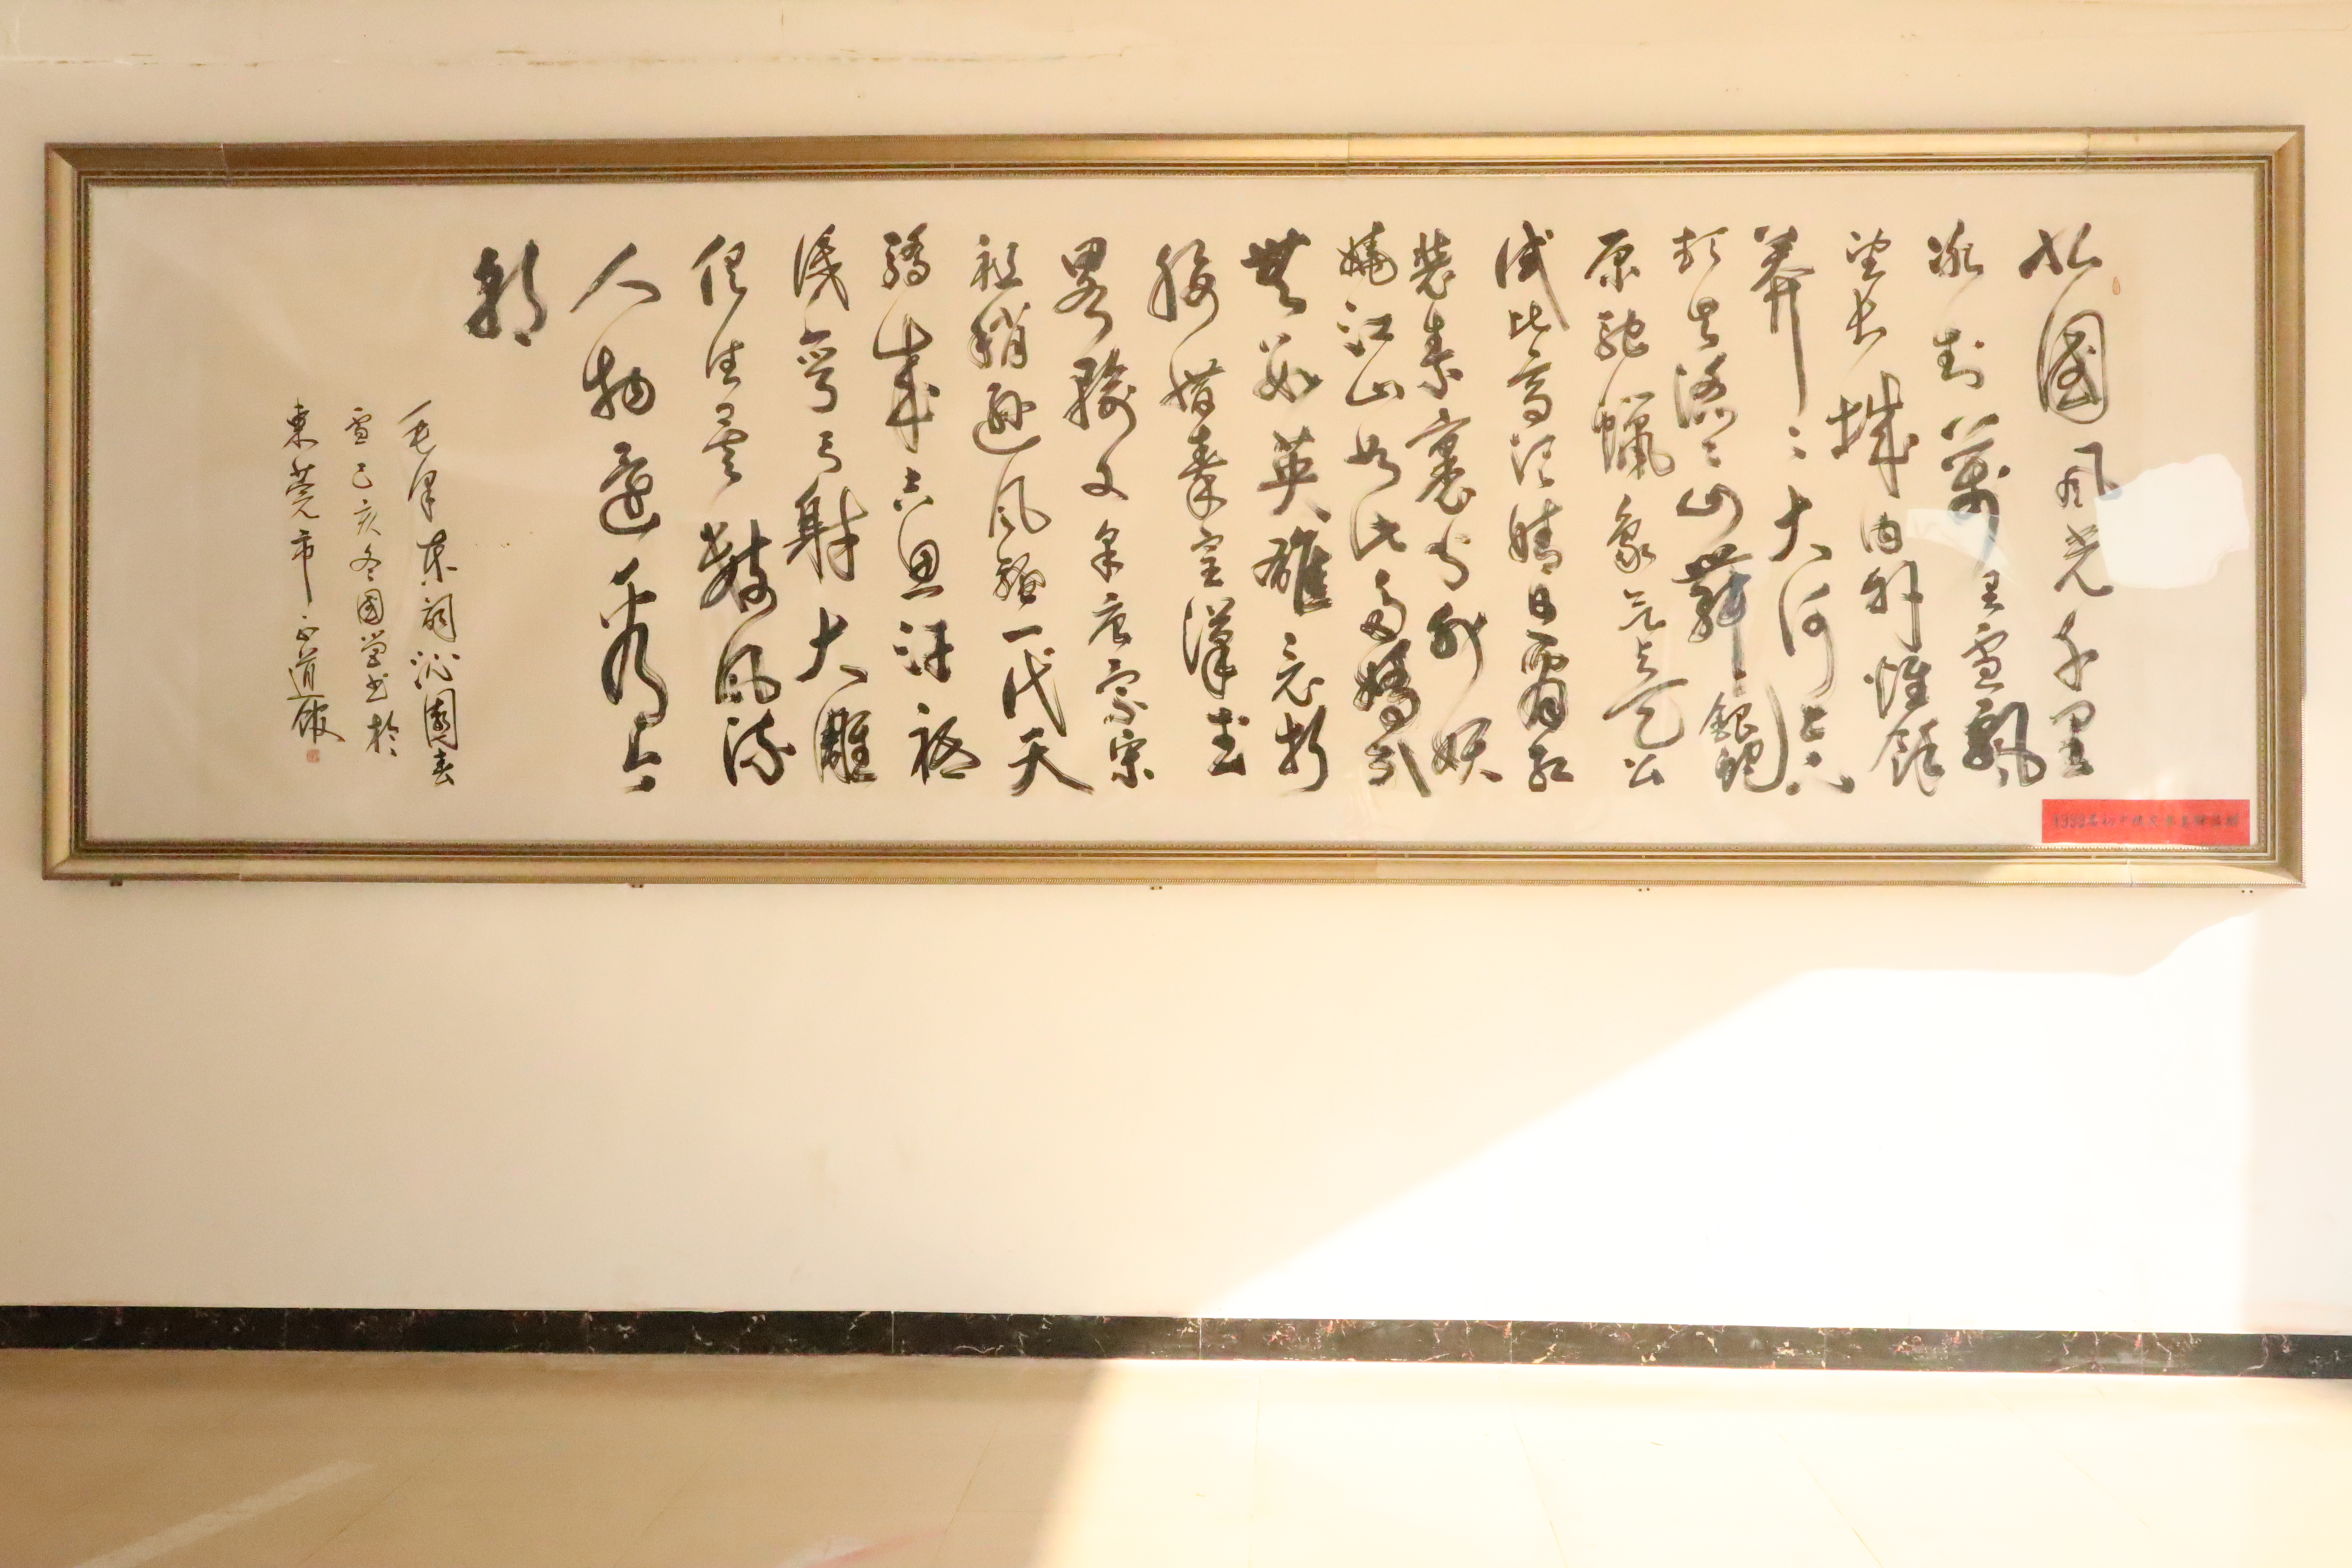 北國風光千里
冰封萬里雪飄
望長城内外惟餘
莽〻大河上下
頓失滔〻山舞銀蛇
原馳蠟象欲与天公
試比高須晴日看紅
裝素裹分外妖
嬈江山如此多嬌引
無數英雄競折
腰惜秦皇漢武
略輸文采唐宗宋
祖稍遜風騷一代天
驕成吉思汗祗
識彎弓射大雕
俱往矣數風流
人物還看今
朝
毛澤東詞沁園春
雪己亥冬国学书於
東莞市道館